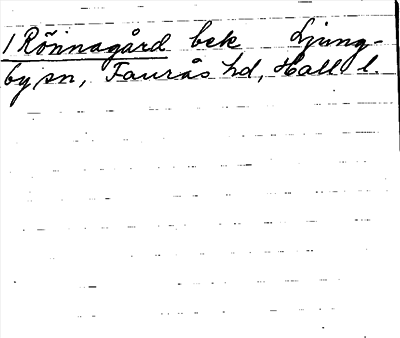 1 Rönnagård bek Ljung-
by sn, Faurås hd, Hall l.